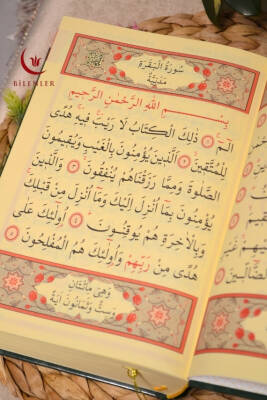 BİLENLER
سُورَةُ الْبَقَرَةِ
مَدَنِيَّةٌ
بِسْمِ اللّٰهِ الرَّحْمٰنِ الرَّحِيمِ
الٓمٓ ۝١ ذٰلِكَ الْكِتَابُ لَا رَيْبَ فِيهِ هُدًى
لِلْمُتَّقِينَ ۝٢ اَلَّذِينَ يُؤْمِنُونَ بِالْغَيْبِ وَيُقِيمُونَ
الصَّلٰوةَ وَمِمَّا رَزَقْنَاهُمْ يُنْفِقُونَ ۝٣ وَالَّذِينَ
يُؤْمِنُونَ بِمَٓا اُنْزِلَ اِلَيْكَ وَمَٓا اُنْزِلَ مِنْ قَبْلِكَ
وَبِالْاٰخِرَةِ هُمْ يُوقِنُونَ ۝٤ اُو۬لٰٓئِكَ عَلٰى
هُدًى مِنْ رَبِّهِمْ وَاُو۬لٰٓئِكَ هُمُ الْمُفْلِحُونَ ۝٥
وَهِيَ مِائَتَانِ
وَسِتٌّ وَثَمَانُونَ اٰيَةً